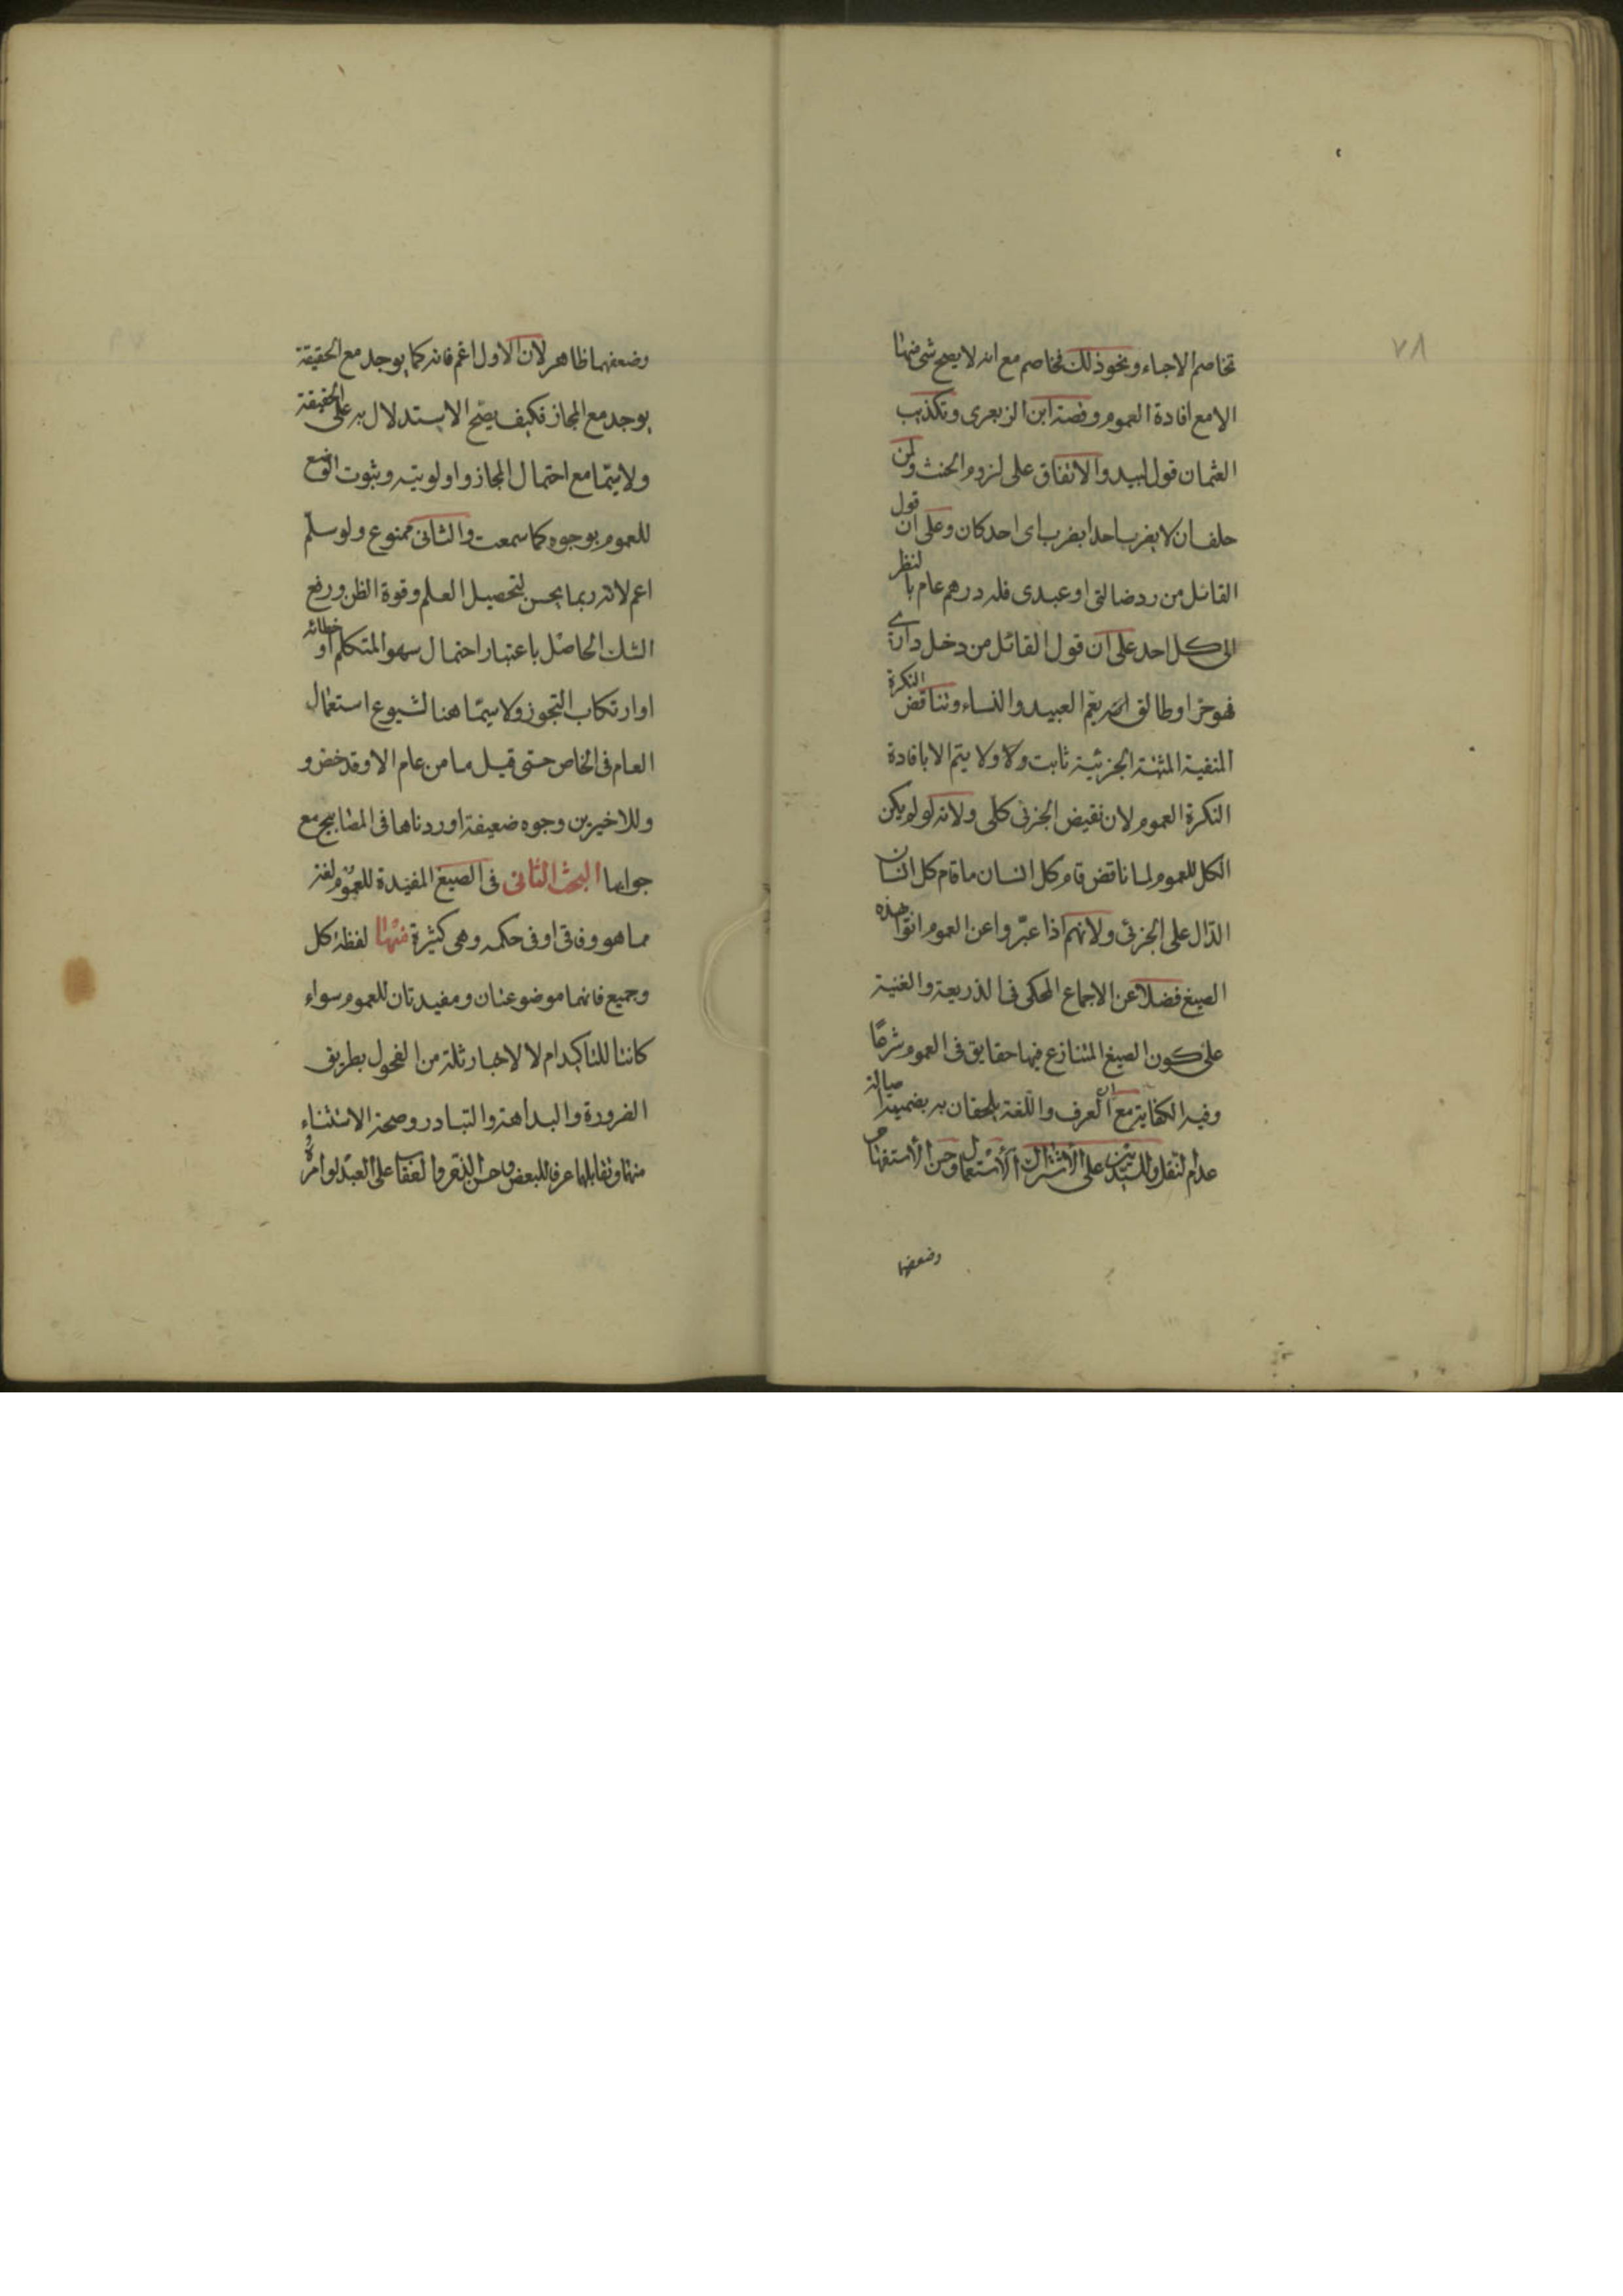 ٧٨
تخاصم الاجباء ونحو ذلك تخاصم مع انه لا يصح شئ منها
الا مع افادة العموم وقصة ابن الزبعرى وتكذيب
العثمان قول لبيد والاتفاق على لزوم الحنث ولمن
حلف ان لا يضرب احدا بضرب اى احد كان وعلى ان قول
القائل من رد ضالتى او عبدى فله درهم عام بالنظر
الى كل احد على ان قول القائل من دخل دارى
فهو حر او طالق انه يعم العبيد والنساء وتناقض النكرة
المنفية المثبتة الجزئية ثابت وكا ولا يتم الا بافادة
النكرة العموم لان نقيض الجزئى كلى ولانه لو لم يكن
الكل للعموم لما ناقض قام كل انسان ما قام كل انسان
الدّال على الجزئى ولانهم اذا عبّروا عن العموم اتوا هذه
الصيغ فضلا عن الاجماع المحكى فى الذريعة والغنية
على كون الصيغ المتنازع فيها حقايق فى العموم شرعًا
وفيه الكفاية مع ان العرف واللّغة يلحقان به بضميمة اصالة
عدم النقل وللسيّدين على الاشتراك الاستعمال وحسن الاستفهام
وضعفهما
وضعفهما ظاهر لان الاول اعم فانه كما يوجد مع الحقيقة
يوجد مع المجاز فكيف يصح الاستدلال به على الحقيقة
ولا سيّما مع احتمال المجاز واولويته وثبوت الوضع
للعموم بوجوه كما سمعت والثانى ممنوع ولو سلّم
اعم لانه ربما يحسن لتحصيل العلم وقوة الظن ورفع
الشك الحاصل باعتبار احتمال سهو المتكلم او خطائه
او ارتكاب التجوز ولا سيّما هنا لشيوع استعمال
العام فى الخاص حتى قيل ما من عام الا وقد خص و
وللاخيرين وجوه ضعيفة اوردناها فى المصابيح مع
جوابها البحث الثانى فى الصيغ المفيدة للعموم لغة
مما هو وفاقى او فى حكمه وهى كثيرة منها لفظة كل
وجميع فانهما موضوعتان ومفيدتان للعموم سواء
كانتا للتاكيد ام لا لاخبار ثلة من الفحول بطريق
الضرورة والبداهة والتبادر وصحة الاستثناء
منها وتقابلهما عرفا للبعض وحسن الذم والعقاب على العبد لو امره